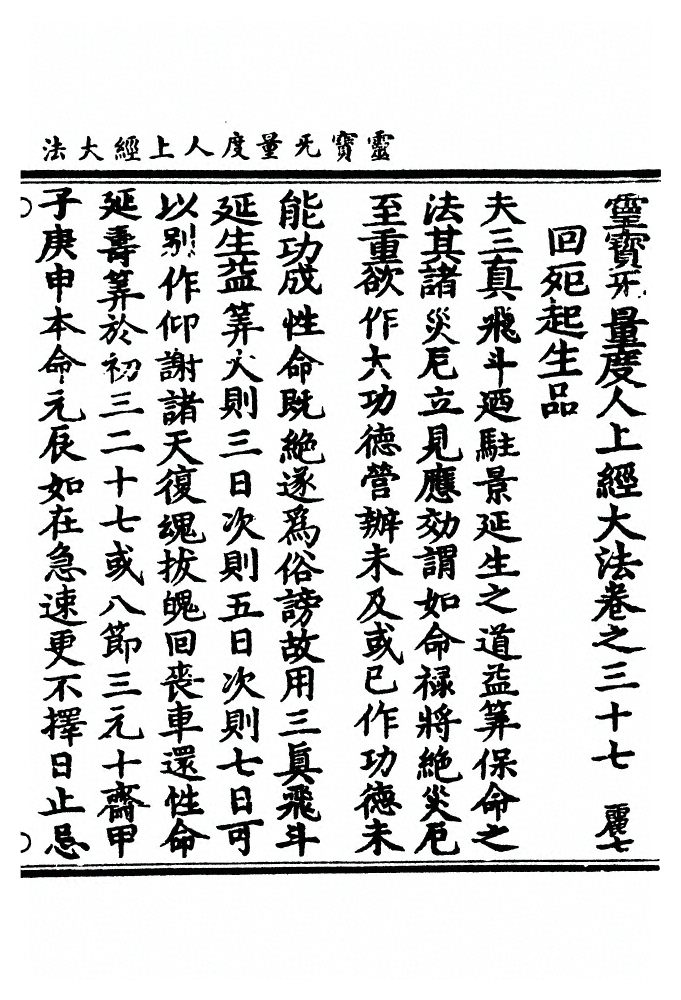 靈寶无量度人上經大法
靈寶无量度人上經大法卷之三十七 麗七
回死起生品
夫三真飛斗迺駐景延生之道益筭保命之
法其諸災厄立見應効謂如命禄將絶災厄
至重欲作大功德營辦未及或已作功德未
能功成性命既絶遂爲俗謗故用三眞飛斗
延生益筭大則三日次則五日次則七日可
以别作仰謝諸天復魂拔魄回喪車還性命
延壽筭於初三二十七或八節三元十齋甲
子庚申本命元辰如在急速更不擇日止忌